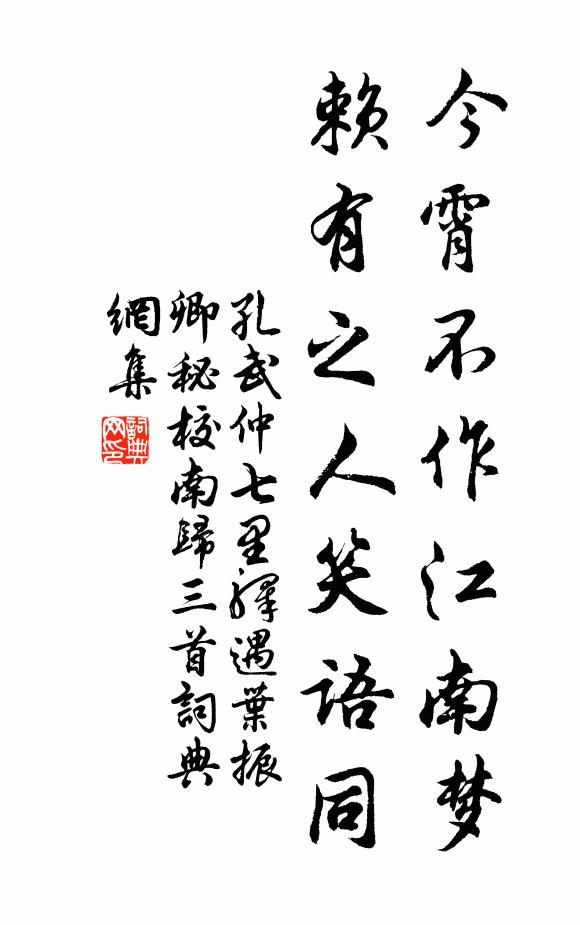 今霄不作江南梦
赖有之人笑语同
孔武仲七里驛遇葉振
卿秘校南歸三首詞典
網集
詞典
网印